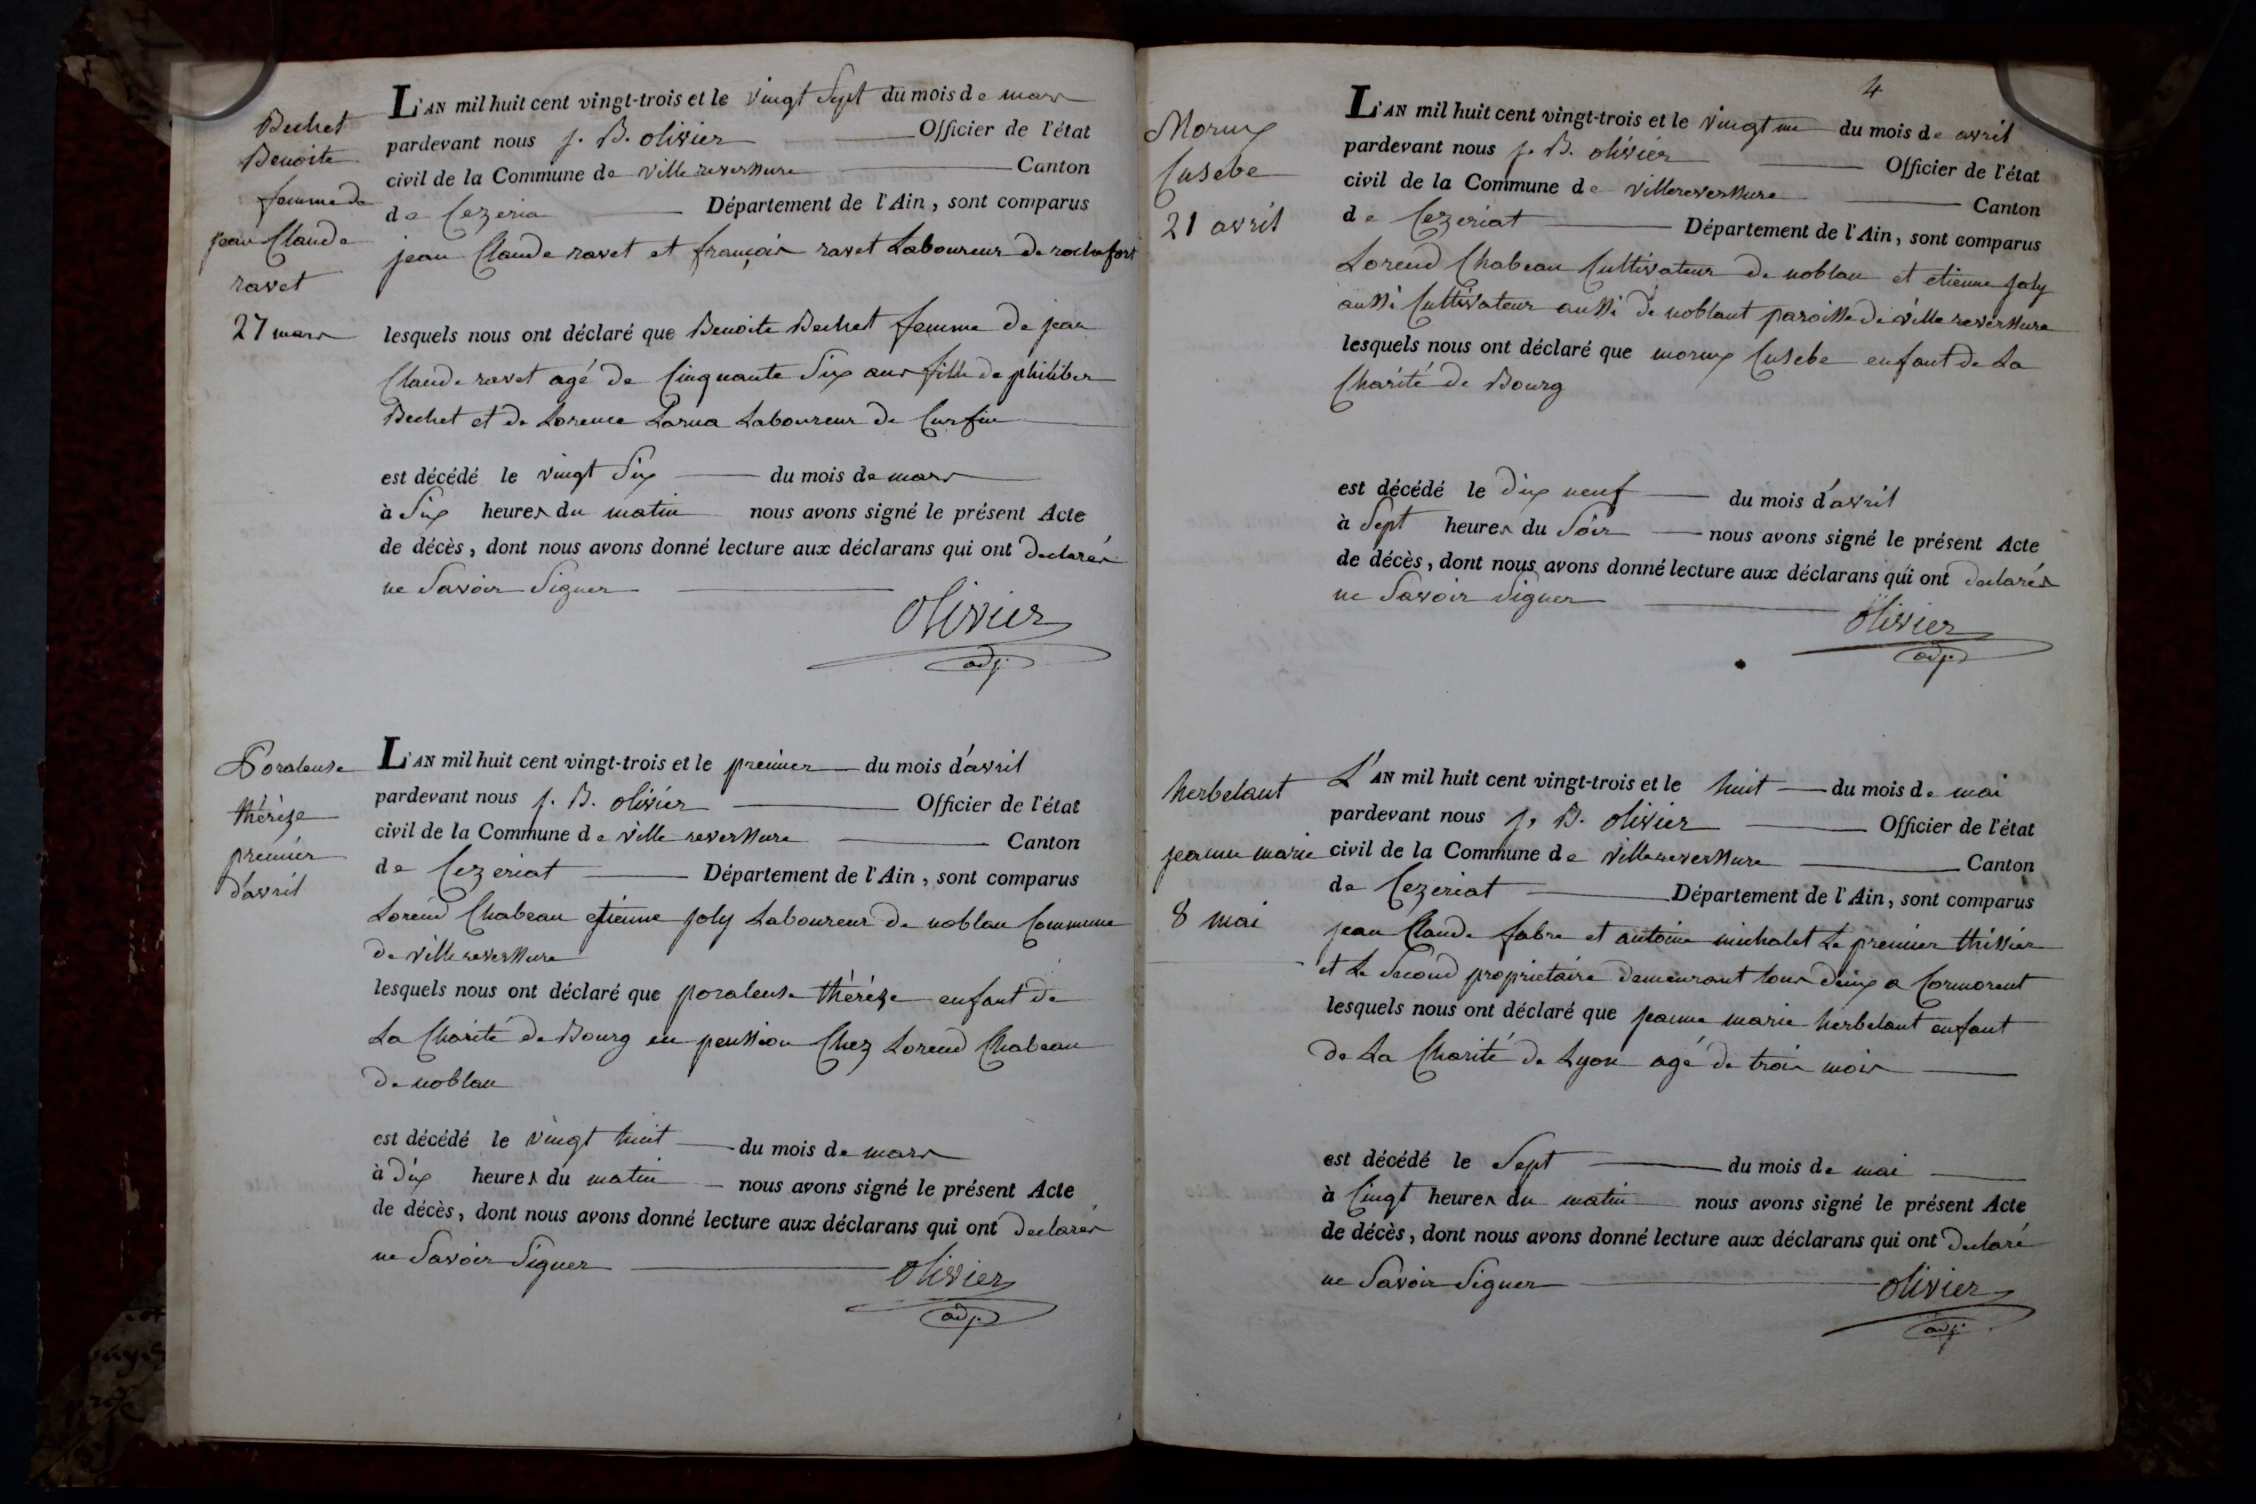 Bechet
Benoite
femme de
jean Claude
ravet
27 mars
L'AN mil huit cent vingt-trois et le vingt Sept du mois de mars
pardevant nous j. B. olivier Officier de l'état
civil de la Commune de ville reverssure Canton
de Cezeria Département de l'Ain, sont comparus
jean Claude ravet et françois ravet Laboureur de rochefort
lesquels nous ont déclaré que Benoite Bechet femme de jean
Claude ravet agé de Cinquante Six ans fille de philiber
Bechet et de Lorence Larua Laboureur de Curfin
est décédé le vingt Six du mois de mars
à Six heures du matin nous avons signé le présent Acte
de décès, dont nous avons donné lecture aux déclarans qui ont declarés
ne Savoir Signer
Olivier
adj.
Poraleuse
thérèze
premier
d'avril
L'AN mil huit cent vingt-trois et le premier du mois d'avril
pardevant nous j. B. olivier Officier de l'état
civil de la Commune de ville reverssure Canton
de Cezeriat Département de l'Ain, sont comparus
Lorend Chabeau etienne joly Laboureur de noblan Commune
de ville reverssure
lesquels nous ont déclaré que poraleuse thérèze enfant de
La Charité de Bourg en penssion Chez Lorend Chabeau
de noblan
est décédé le vingt huit du mois de mars
à dix heures du matin nous avons signé le présent Acte
de décès, dont nous avons donné lecture aux déclarans qui ont declarés
ne Savoir Signer
Olivier
adj.
4
Morux
Cusebe
21 avril
L'AN mil huit cent vingt-trois et le vingt un du mois de avril
pardevant nous j. B. olivier Officier de l'état
civil de la Commune de villereverssure Canton
de Cezeriat Département de l'Ain, sont comparus
Lorend Chabeau Cultivateur de noblan et etienne joly
aussi Cultivateur aussi de noblant paroisse de ville reverssure
lesquels nous ont déclaré que morux Cusebe enfant de La
Charité de Bourg
est décédé le dix neuf du mois d'avril
à Sept heures du Soir nous avons signé le présent Acte
de décès, dont nous avons donné lecture aux déclarans qui ont declarés
ne Savoir Signer
Olivier
adj.
herbelant
jeanne marie
8 mai
L'AN mil huit cent vingt-trois et le huit du mois de mai
pardevant nous j. B. olivier Officier de l'état
civil de la Commune de villereverssure Canton
de Cezeriat Département de l'Ain, sont comparus
jean Claude fabre et antoine michalet Le premier thissier
et Le Second proprietaire demeurant tous deux a Cormorent
lesquels nous ont déclaré que jeanne marie herbelant enfant
de La Charité de Lyon agé de trois mois
est décédé le Sept du mois de mai
à Cinqt heures du matin nous avons signé le présent Acte
de décès, dont nous avons donné lecture aux déclarans qui ont declaré
ne Savoir Signer
Olivier
adj.